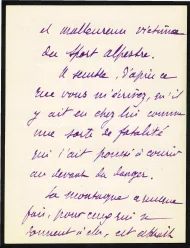 et malheureuse victime
du sport alpestre.
Il semble, d'après ce
que vous m'écrivez, qu'il
y ait eu chez lui comme
une sorte de fatalité
qui l'ait poussé à courir
au devant du danger.
La montagne a
fois, pour ceux qui se
donnent à elle, cet attrait